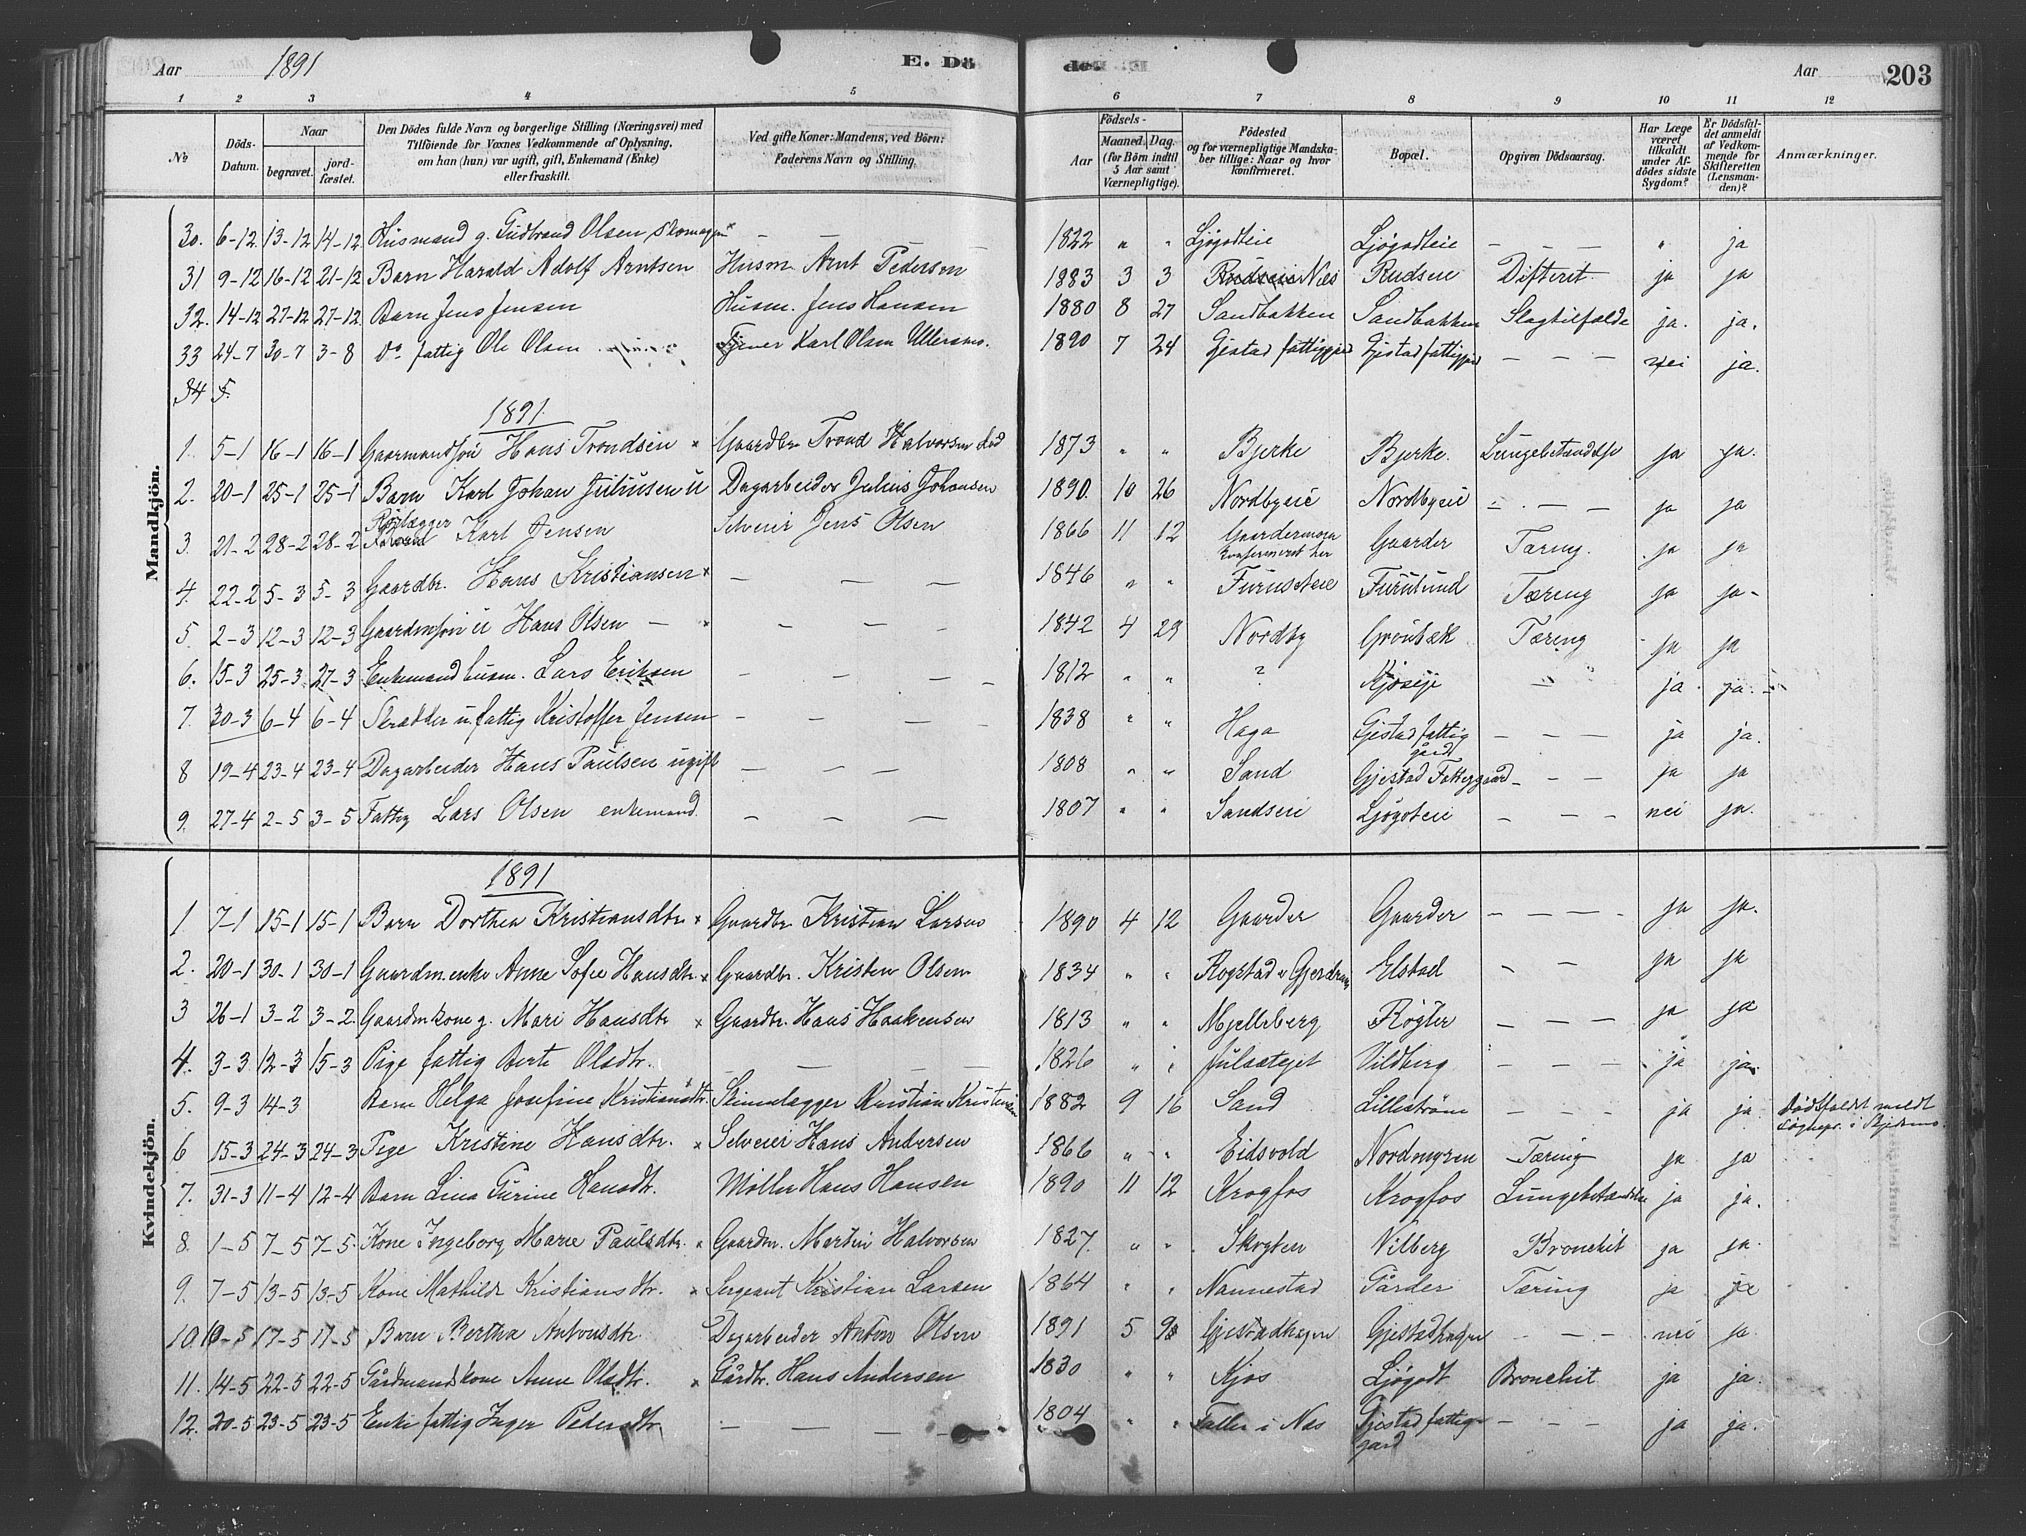 Aar 1891 E. Dö
de. Aar 203
1 2 3 4 5 6 7 8 9 10 11 12
№ Döds-Datum. Naar begravet. jord-fæstet. Den Dödes fulde Navn og borgerlige Stilling (Næringsvei) med Tilföiende for Voxnes Vedkommende af Oplysning, om han (hun) var ugift, gift, Enkemand (Enke) eller fraskilt. Ved gifte Koner: Mandens, ved Börn: Faderens Navn og Stilling. Födsels- Aar Maaned. Dag. (for Börn indtil 5 Aar samt Værnepligtige). Födested og for værnepligtige Mandskaber tillige: Naar og hvor konfirmeret. Bopæl. Opgiven Dödsaarsag. Har Læge været tilkaldt under Afdödes sidste Sygdom? Er Dödsfaldet anmeldt af Vedkommende for Skifteretten (Lensmanden)? Anmærkninger.
Mandkjön.
30. 6-12 13-12 14-12 Husmand g. Gudbrand Olsen skomager — — — 1822 " " Ljøgodteie Ljøgodteie — — — " ja
31 9-12 16-12 21-12 Barn Harald Adolf Arntsen Husm. Arnt Pedersen 1883 3 3 Rudseie Nes Rudseie Difterit ja ja
32. 14-12 27-12 27-12 Barn Jens Jensen Husm. Jens Hansen 1880 8 27 Sandbakken Sandbakken Slagtilfælde ja. ja.
33 24-7 30-7 3-8 Do fattig Ole Olsen Tjener Karl Olsen Ullersmo. 1890 7 24 Gjestad fattiggård Gjestad fattiggård — — — nei ja.
34 5.
1891
1. 5-1 16-1 16-1 Gaarmandssøn Hans Trondsen × Gaardbr. Trond Halvorsen 1873 " " Bjerke Bjerke. Lungebetændelse ja ja.
2. 20-1 25-1 25-1 Barn Karl Johan Juliusen u Dagarbeider Julius Johansen 1890. 10 26 Nordbyeie Nordbyeie — — — ja ja
3. 21-2 28-2 28-2 Karl Jensen Selveier Jens Olsen 1866 11 12 Gaardermoen konfirmeret her Gaarder Tæring. ja ja
4. 22-2 5-3 5-3 Gaardbr. Hans Kristiansen × — — — 1846 " " Furuseteie Furulund Tæring ja ja-
5 2-3 12-3 12-3 Gaardmsøn u Hans Olsen — × — — — 1842 4 29 Nordby Grønbæk Tæring ja ja
6. 15-3 25-3 27-3 Enkemand husm. Lars Eriksen — — — 1812 " " ? Kjoseje — ja. ja.
7. 30-3 6-4 6-4 Skrædder u. fattig Kristoffer Jensen — — — 1838 " " Haga Gjestad fattiggård — — — ja ja.
8 19-4 23-4 23-4 Dagarbeider Hans Paulsen ugift — — — 1808 " " Sand Gjestad Fattiggaard — — — ja ja
9. 27-4 2-5 3-5 Fattig Lars Olsen enkemand. — — — 1807 " " Sandseie Ljøgoteie — — — nei ja.
Kvindekjön.
1891
1 7-1 15-1 15-1 Barn Dorthea Kristiansdtr. × Gaardbr. Kristian Larsen 1890 4 12 Gaarder Gaarder — — — ja ja.
2. 20-1 30-1 30-1 Gaardm.enke Anne Sofie Hansdtr. × Gaardbr. Kristen Olsen 1834 " " Rogstad i Gjerdrum Elstad — — ja ja
3 26-1 3-2 3-2. Gaardmkone g. Mari Hansdtr × Gaardbr. Hans Haakensen 1813 " " Mjelleberg Røgler — — — ja ja
4. 3-3 12-3 15-3 Pige fattig Berte Olsdtr. — — — 1826 " " Julsætejet Vildberg — — — ja ja.
5. 9-3 14-3 Barn Helga Josefine Kristiansdtr. Skinnelægger Kristian Kristensen 1882 9 16 Sand Lillestrøm — — — ja ja. Dødsfaldet meldt Sognepr. i Skjedsmo.
6 15-3 24-3 24-3 Pige Kristine Hansdtr. × Selveier Hans Andersen 1866 " " Eidsvold Nordmyren Tæring ja ja
7. 31-3 11-4 12-4 Barn Lina Gurine Hansdtr. Møller Hans Hansen 1890 11 12 Krogfos Krogfos Lungebetændelse ja ja.
8. 1-5 7-5 7-5. Kone Ingeborg Marie Paulsdtr. × Gaardm. Martin Halvorsen 1827. " " Skogten Vilberg Bronchit ja ja.
9. 7-5 13-5 13-5 Kone Mathilde Kristiansdtr. × Sergeant Kristian Larsen 1864 " " Nannestad Gårder Tæring ja ja
10. 10-5 17-5 17-5 Barn Bertha Antonsdtr. Dagarbeider Anton Olsen 1891 5 9 Gjestadhagen Gjestadhagen — — — nei ja.
11. 14-5 22-5 22-5 Gårdmandskone Anne Olsdtr. × Gårdbr. Hans Andersen 1830 " " Kjos Ljøgodt Bronchit ja ja.
12. 20-5 23-5 23-5 Enke fattig Inger Pedersdtr. — — — 1804 " " Faller i Nes Gjestad fattiggard — — — ja ja.